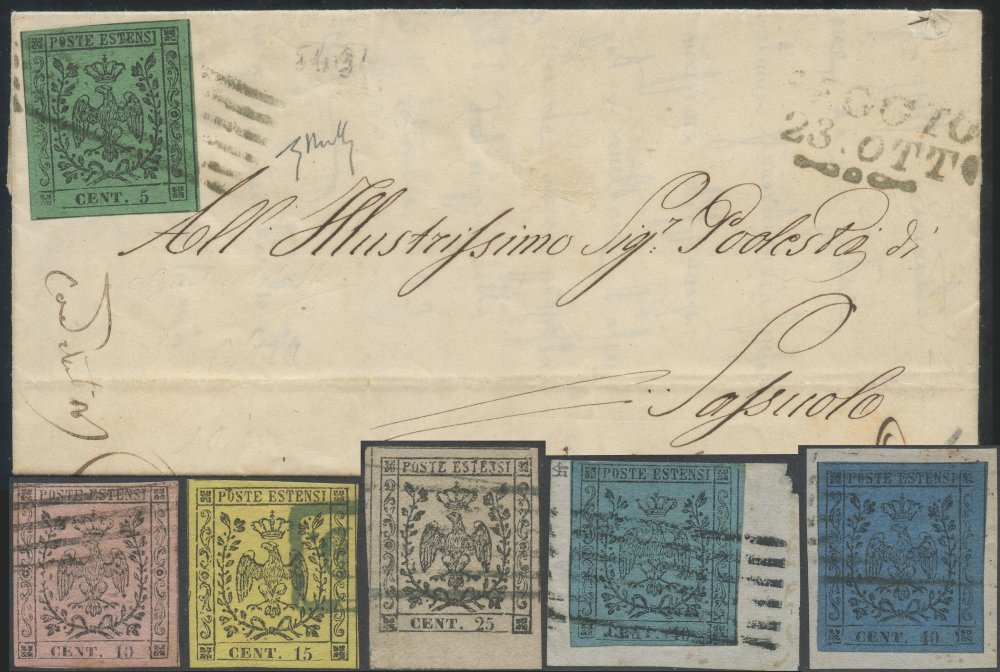 POSTE ESTENSI
CENT. 5
23. OTT
All'. Illustrissimo Sigr. Podestà di
Sassuolo
POSTE ESTENSI
CENT. 10
POSTE ESTENSI
CENT. 15
POSTE ESTENSI
CENT. 25
POSTE ESTENSI
CENT. 40
POSTE ESTENSI
CENT. 40